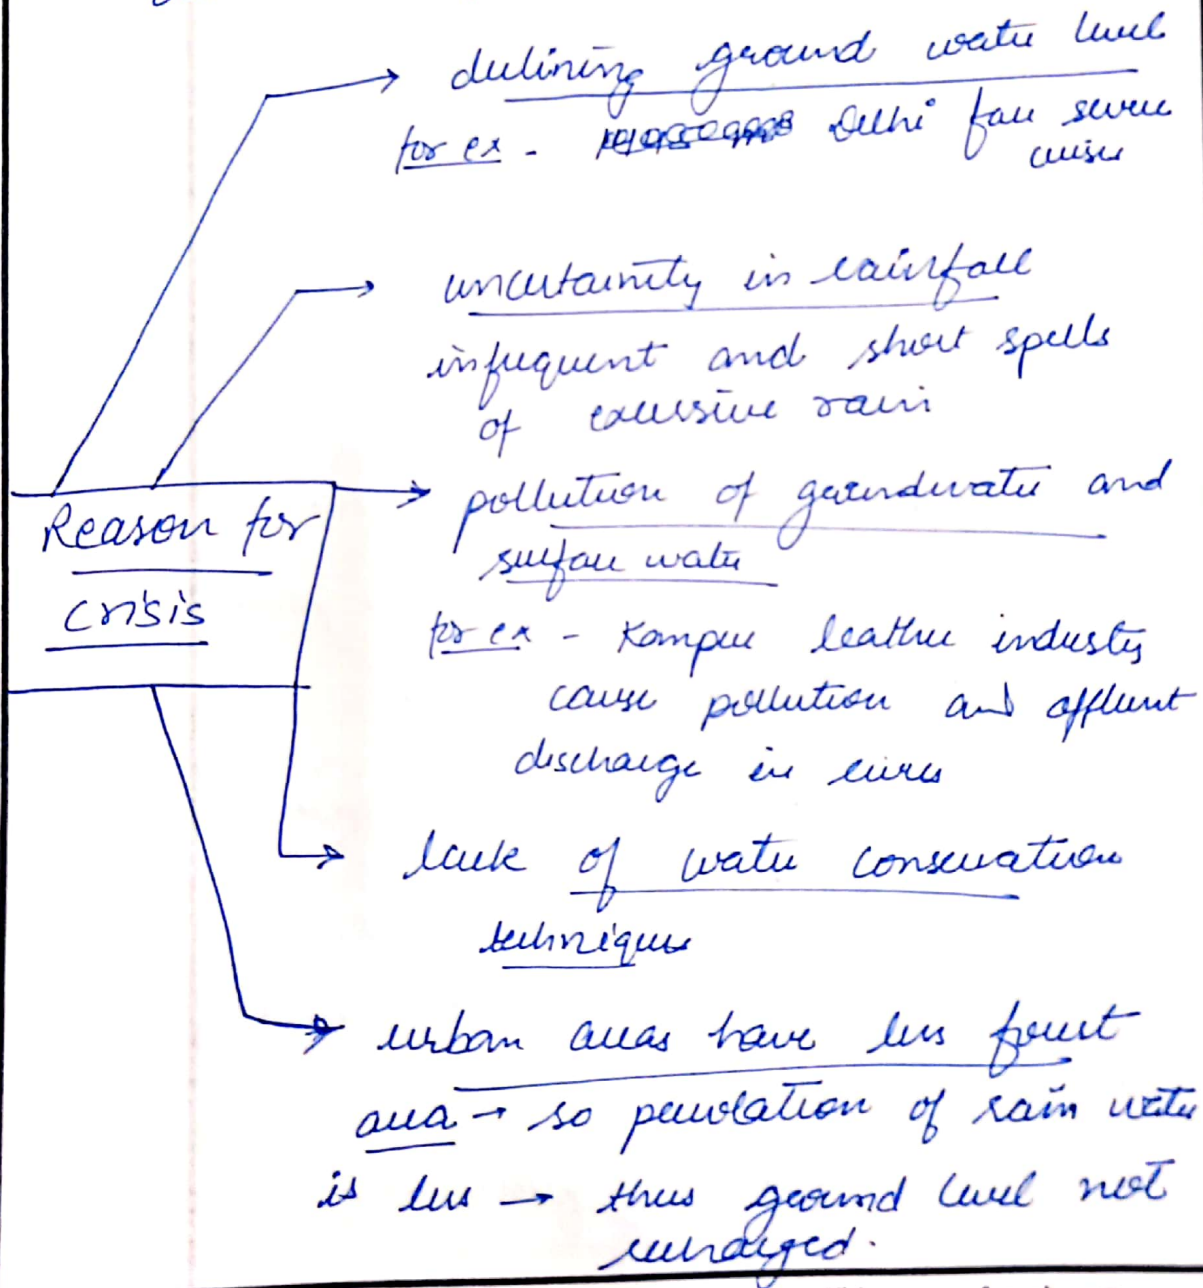 declining ground water level
for ex - Delhi face severe
crises
uncertainity in rainfall
infrequent and short spells
of excessive rain
pollution of groundwater and
surface water
for ex - Kanpur leather industry
cause pollution and affluent
discharge in rivers
lack of water conservation
techniques
urban areas have less forest
area → so percolation of rain water
is less → thus ground level not
recharged.
Reason for
crisis